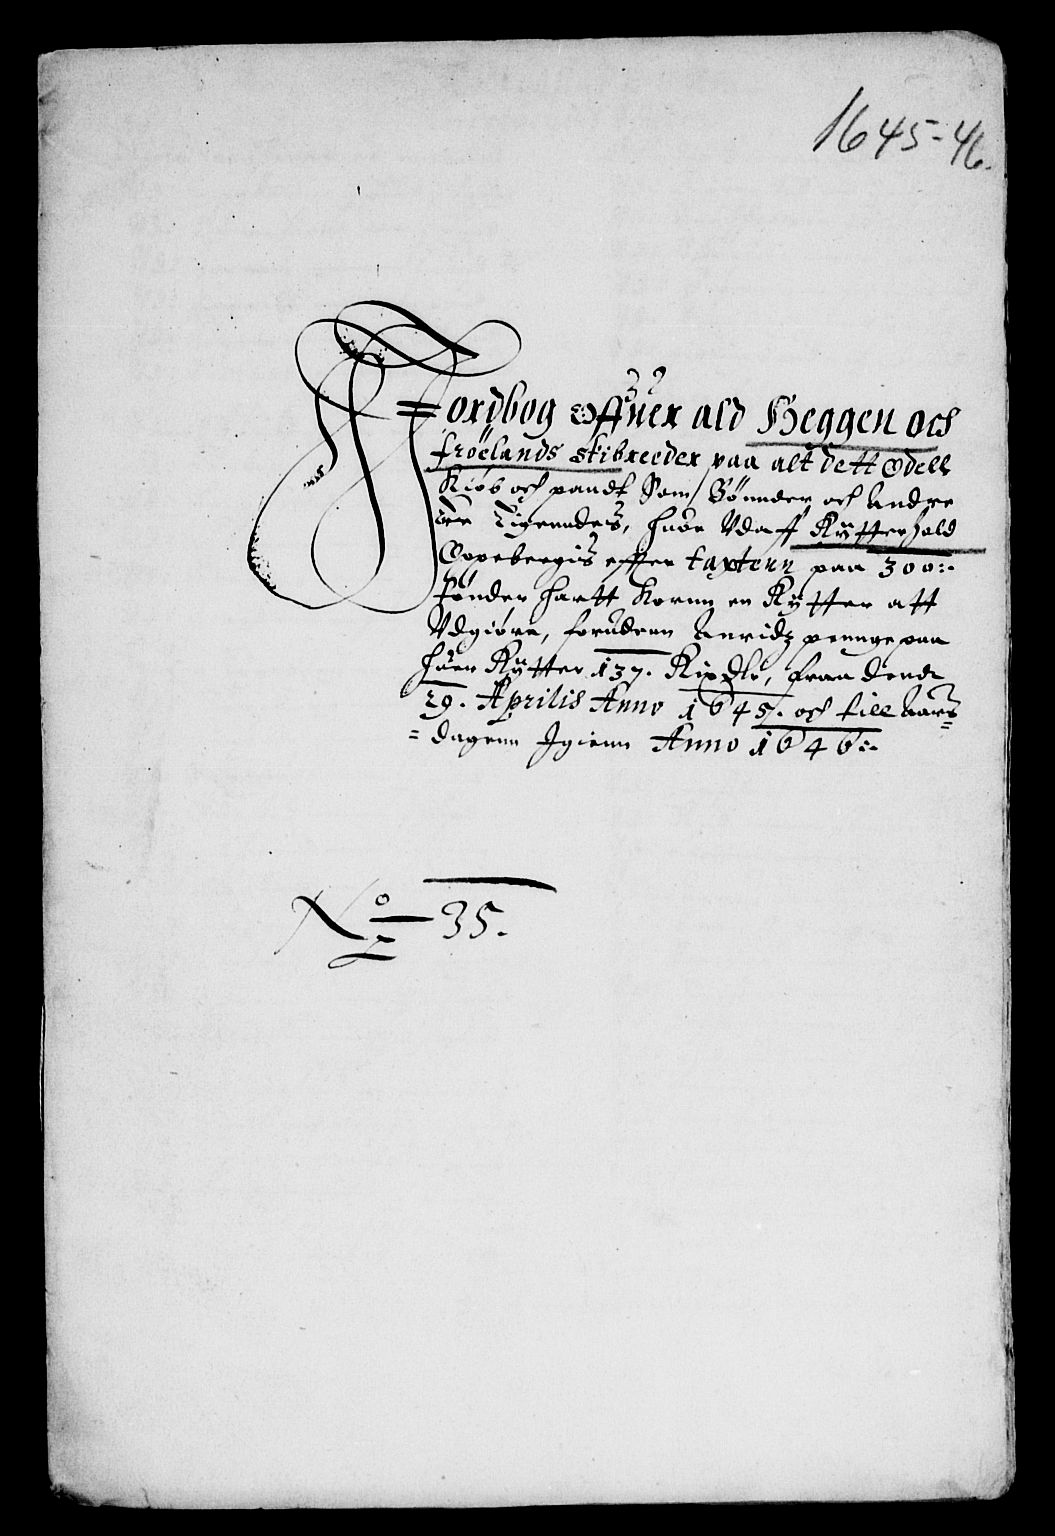 1645-46.
Jordbog offuer ald Heggen och
frölands skibreeder paa alt dett Odell
Kiøb och pandt Som Bønnder och Andre
er Eigenndes, huor Udaff Rytterhold
Oppebergis effter taxtenn paa 300:-
tønder hartt Kornn en Rytter att
Udgiøre, forudenn Anridz pennge paa
huer Rytter 137. Rix dlr, fraa dend
29. Aprilis Anno 1645. och till Aars=
=dagenn Igienn Anno 1646:-
No 35.